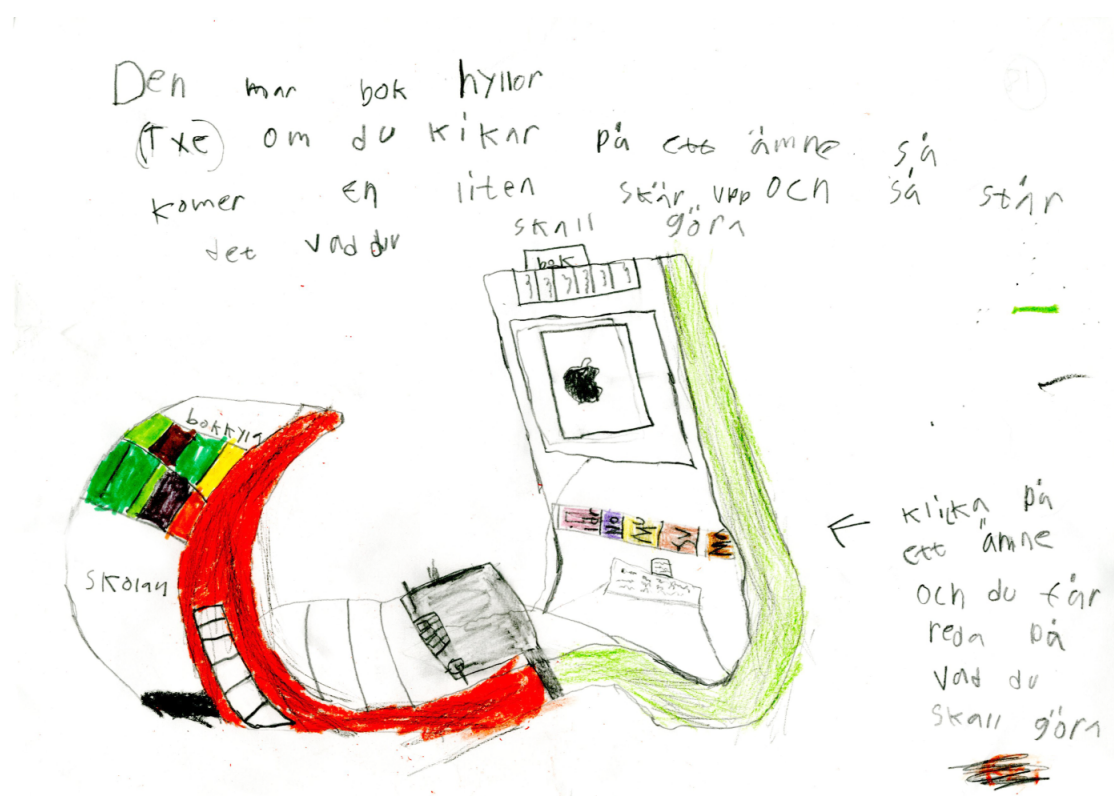 Den mar bok hyllor
(Txe) om du kikar på ett ämne så
komer en liten skär upp och så står
det vad du skall göra
bok
bokhyla
skolan
idr No MU SV MA
klicka på
ett ämne
och du får
reda på
vad du
skall göra